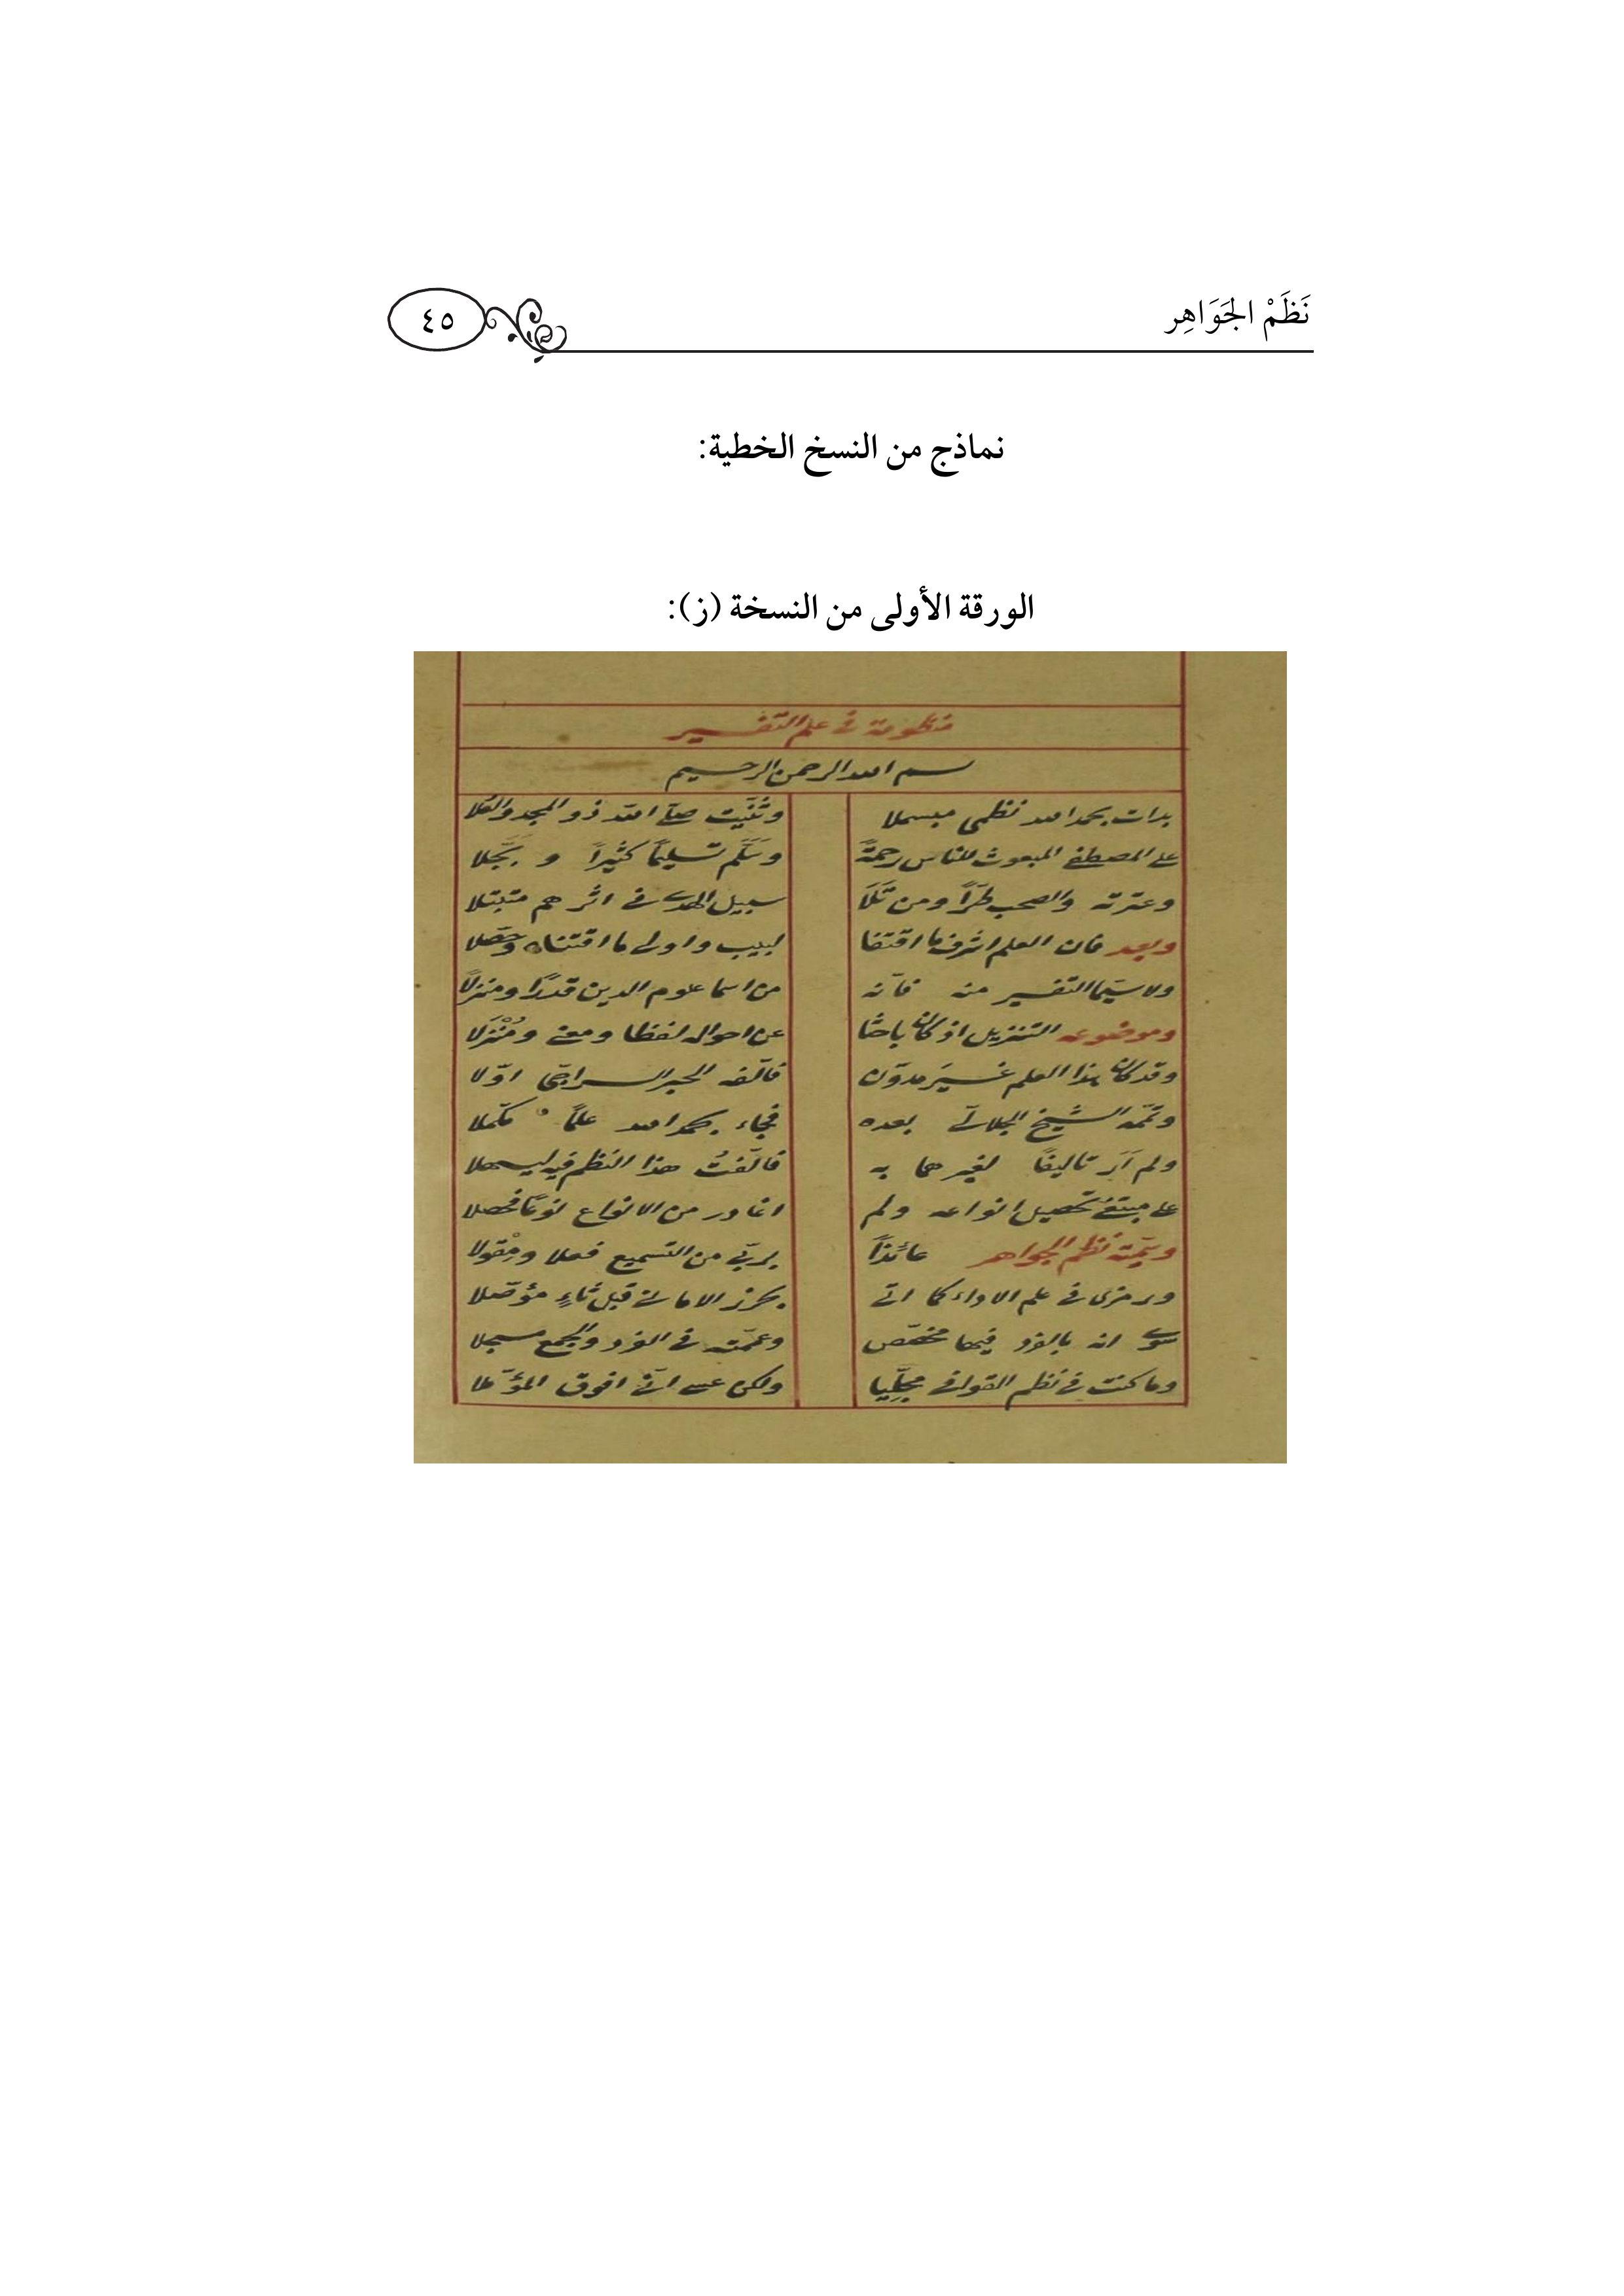 نَظَمْ الجَوَاهِر
٤٥
نماذج من النسخ الخطية:
الورقة الأولى من النسخة (ز):
منظومة في علم التفسير
بسم الله الرحمن الرحيم
بدات بحمد الله نظمي مبسملا وثنّيت صلّى الله ذو المجد والعلا
على المصطفى المبعوث للناس رحمةً وسَلَّم تسليمًا كثيرًا و بجّلا
وعترته والصحب طرّاً ومن تَلَا سبيل الهدى في اثرهم متبتلا
وبعد فان العلم اشرف ما اقتفا لبيب واولى ما اقتناه وحصّلا
ولا سيّما التفسير منه فانّه من اسما علوم الدين قدرًا ومنزلًا
وموضوعه التنزيل اذ كان باحثا عن احواله لفظا ومعنى ومُنْزَلا
وقد كان هذا العلم غيرَ مدوّن فالّفه الحبر السراجيّ اوّلا
وتمّمه الشيخ الجلاليّ بعده فجاء بحمد الله علمًا مكمّلا
ولم اَرَ تاليفًا لغيرهما به فالّفتُ هذا النظم فيه ليسهلا
على مبتغي تحصيل انواعه ولم اغادر من الانواع نوعًا محصلا
وسمّيته نظم الجواهر عائذًا بربّي من التسميع فعلا ومِقْولا
ورمزى في علم الاداء كما اتى بحرز الامانى قبل ثاءٍ مؤصّلا
سوى انه بالفرد فيها مخصّص وعمّمته في الفرد والجمع مسجلا
وما كنت في نظم القوافي مجلّيا ولكن عسى انّي افوق المؤمّلا